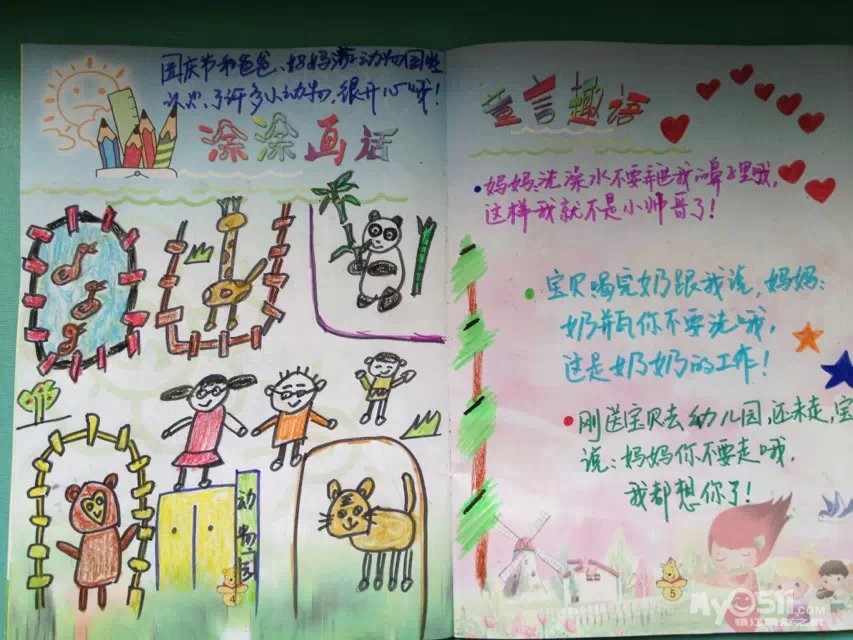 国庆节和爸爸、妈妈游动物园啦
认识了许多小动物,很开心哦!
涂涂画话
动物园
4
童言趣语
妈妈:洗澡水不要弄到我的鼻子里哦,
这样我就不是小帅哥了!
宝贝喝完奶跟我说,妈妈:
奶瓶你不要洗哦,
这是奶奶的工作!
刚送宝贝去幼儿园,还未走,宝
说:妈妈你不要走哦,
我都想你了!
5
My0511.com